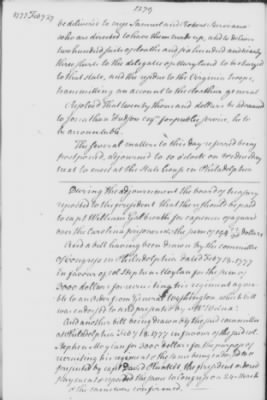 1777 Feb 27
be delivered to mess Samuel and Robert Purviance
who are directed to have them made up, and to deliver
two hundred suits of cloaths and six hundred and ninety
three shirts to the delegates of Maryland to be charged
to that state, and the residue to the Virginia troops,
transmitting an account to the cloathier general
Resolved That twenty thousand dollars be advanced
to Jonathan Hudson esqr for public service, he to
be accountable.
The several matters to this day referred being
postponed, adjourned to 10 o'Clock on wednesday
next to meet at the State house in Philadelphia
During the adjournment the board of treasury
reported to the president that there should be paid
to capt William Galbreath for expences of a guard
over the Carolina prisoners the sum of dollars
And a bill having been drawn by the committee
of Congress in Philadelphia Dated Feb 14. 1777
in favour of col Stephen Moylan for the sum of
3000 dollars for recruiting his regiment agree
able to an order from General Washington which bill
was endorsed to and presented by
And another bill being drawn by the said committee
at Philadelphia Feb 19. 1777 in favour of the said col
Stephen Moylan for 3000 dollars for the purpose of
recruiting his regiment the same being endorsed to &
presented by capt David Plunkett the president ordered
payment & reported the same to Congress on 24 March
& the same were confirmed.